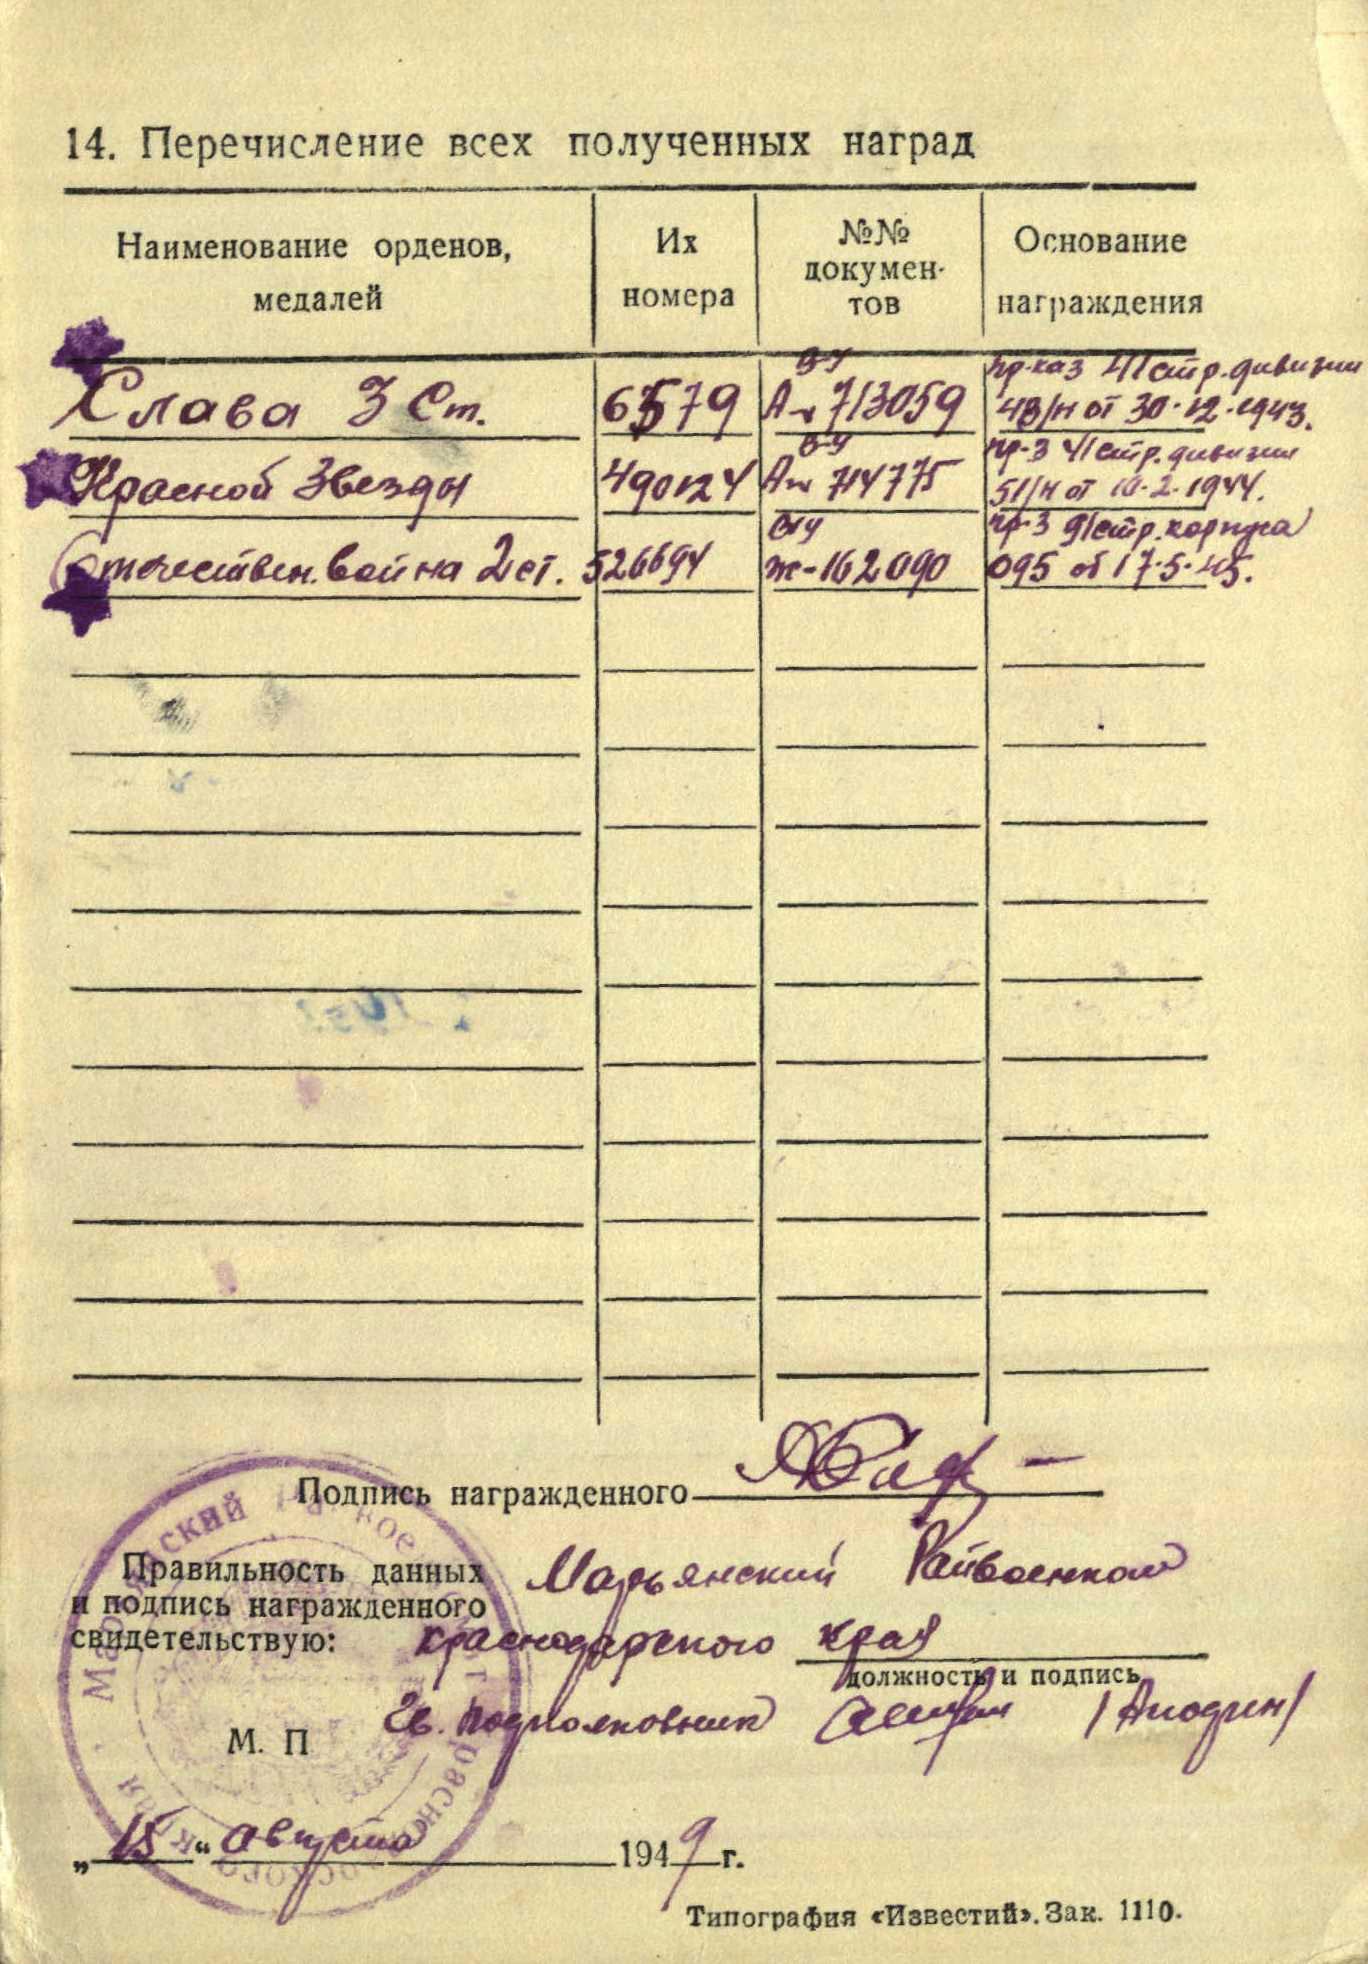 14. Перечисление всех полученных наград
Наименование орденов, медалей
Их номера
№№ докумен-тов
Основание награждения
Слава 3 Ст. 6579 А 713059 пр-каз 41 стр. дивизии 48/н от 30.12.1943.
Красной Звезды 490124 А 714775 пр-з 41 стр. дивизии 51/н от 10.2.1944.
Отечествен. война 2 ст. 526694 ж-162090 пр-з 91 стр. корпуса 095 от 17.5.45.
Подпись награжденного
Правильность данных
и подпись награжденного
свидетельствую:
Марьянский Райвоенком
Краснодарского края
должность и подпись
Гв. подполковник /Анодин/
М. П
„15“ августа 1949 г.
Типография «Известий». Зак. 1110.